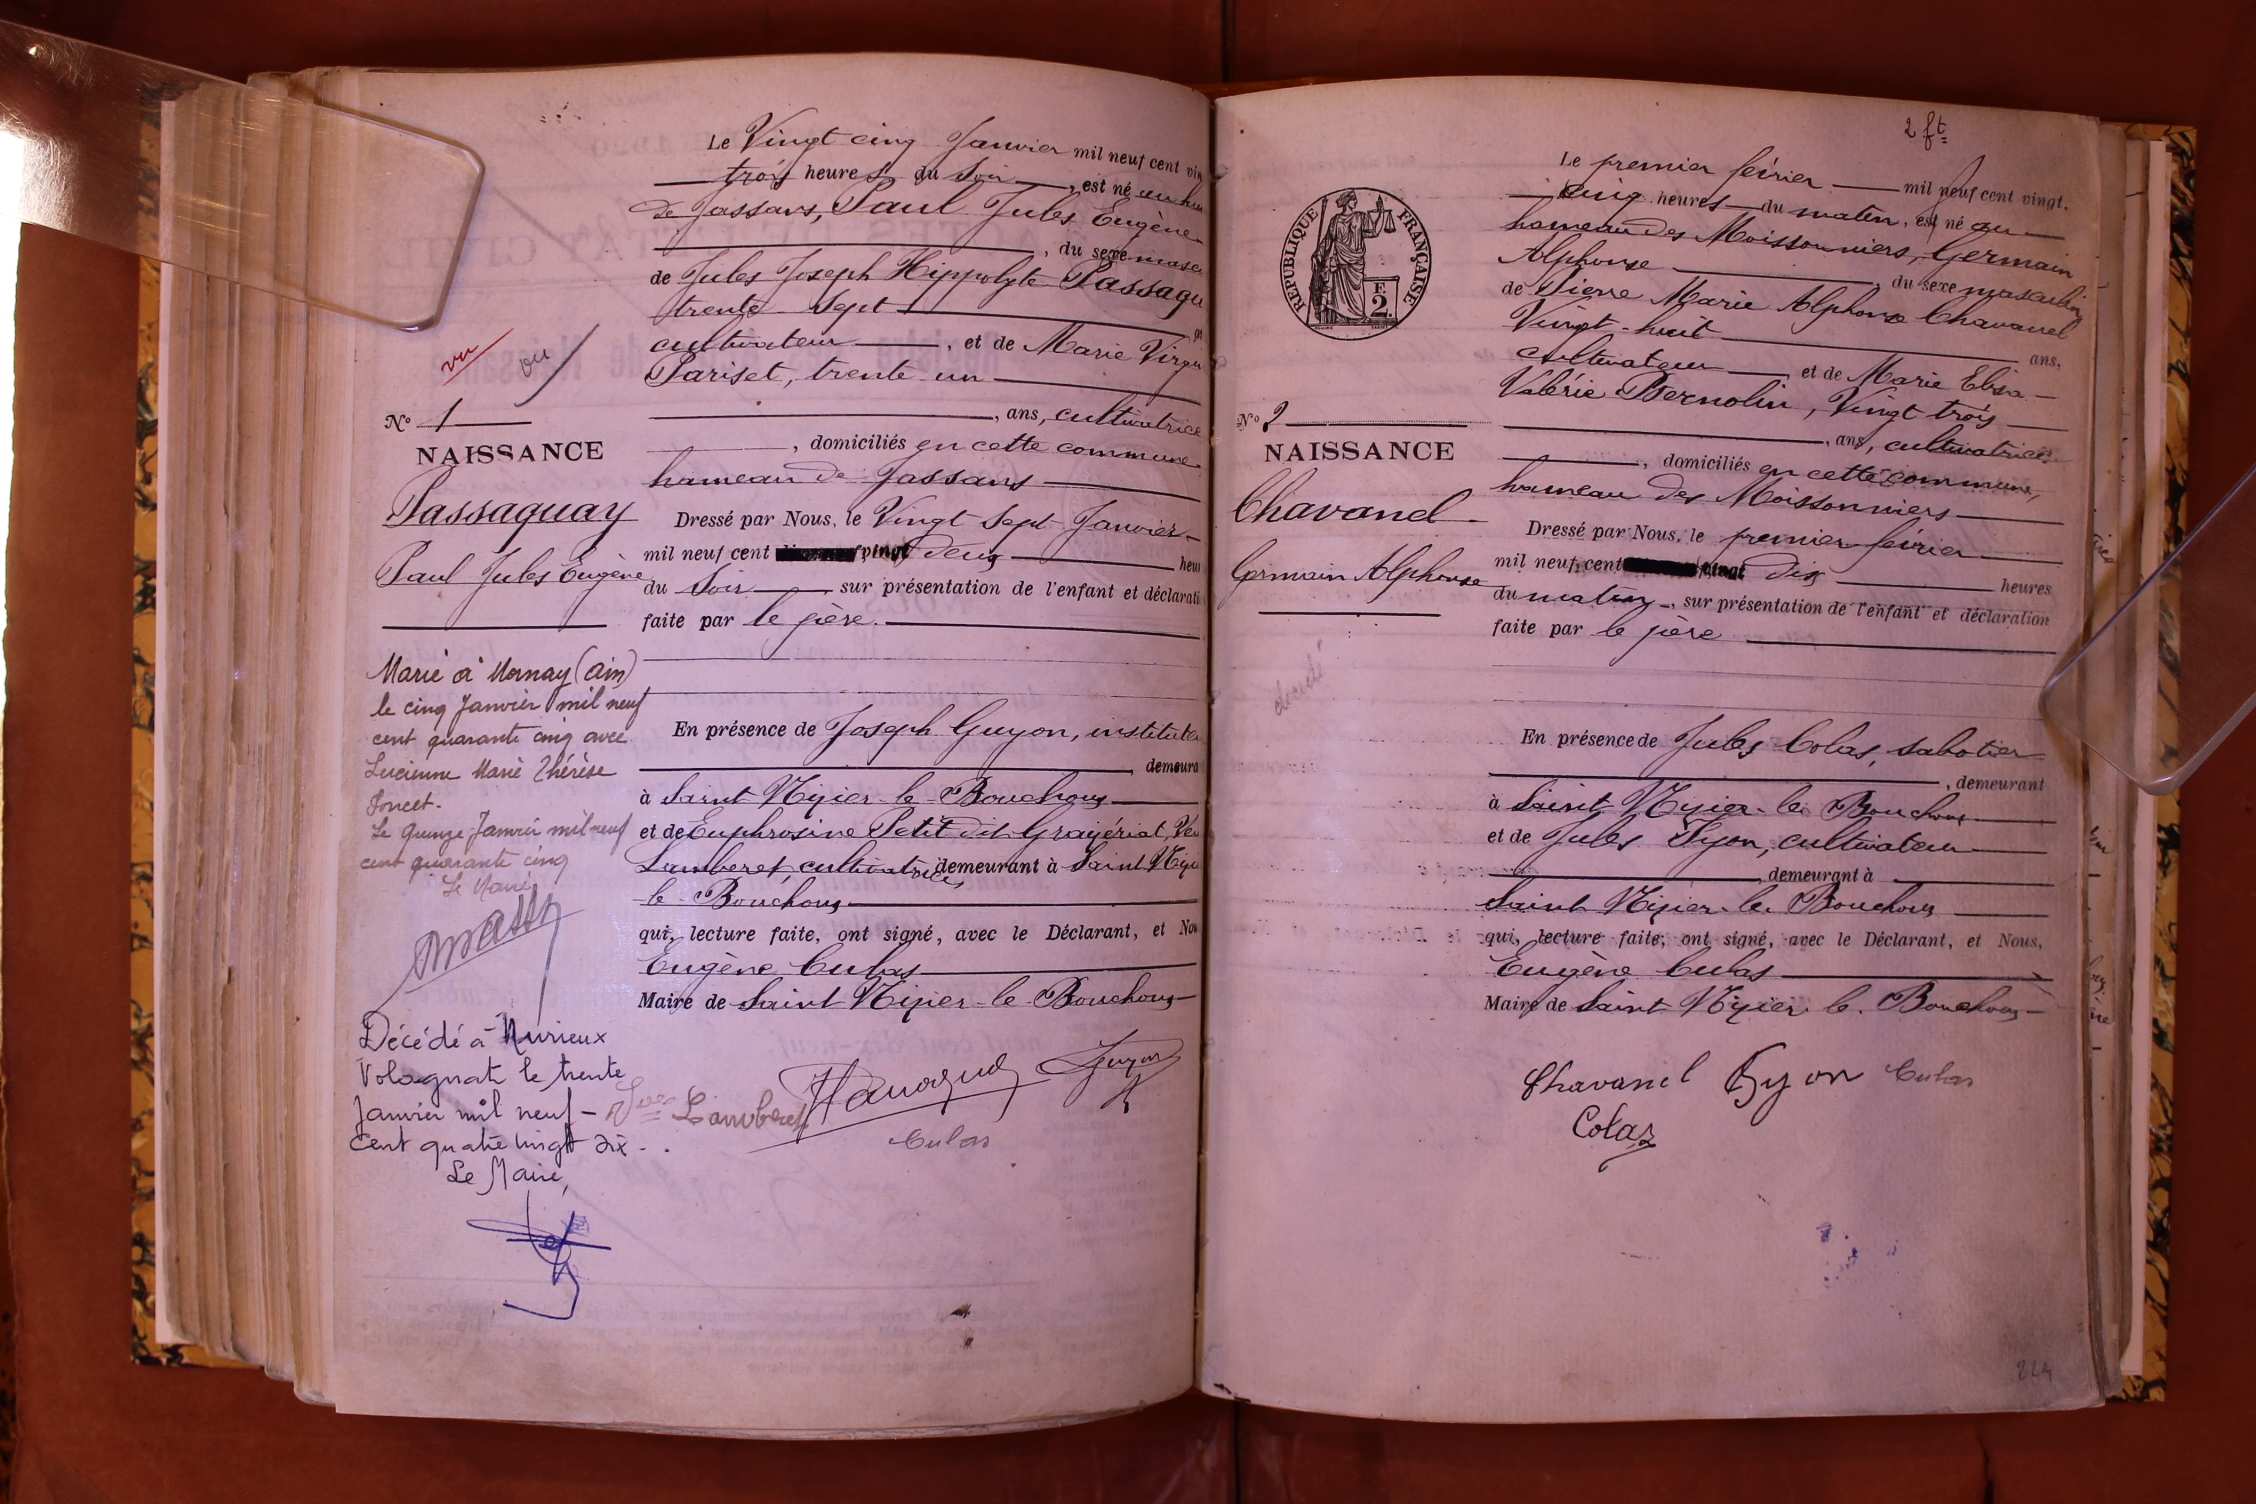 Le Vingt cinq Janvier mil neuf cent vin
trois heures du Soir, est né au ham
de Jassans, Paul Jules Eugène
, du sexe masc
de Jules Joseph Hippolyte Passagu
trente-sept
cultivateur, et de Marie Virgi
Pariset, trente-un
, ans, cultivatrice
, domiciliés en cette commune
hameau de Jassans
Dressé par Nous, le Vingt Sept Janvier
mil neuf cent vingt deux heur
du Soir sur présentation de l'enfant et déclarati
faite par le père.
En présence de Joseph Guyon, institute
, demeura
à Saint Nizier-le-Bouchoux
et de Euphrosine Petit dit Grayériat, Veu
Lamberet, cultivatrice, demeurant à Saint Nizi
le-Bouchoux
qui, lecture faite, ont signé, avec le Déclarant, et Nou
Eugène Culas
Maire de Saint Nizier-le-Bouchoux
Vve Lamberet
Guyon
Culas
vu vu
N° 1
NAISSANCE
Passaquay
Paul Jules Eugène
Marié à Mornay (Ain)
le cinq Janvier mil neuf
cent quarante cinq avec
Lucienne Marie Thérèse
Poncet.
Le quinze Janvier mil neuf
cent quarante cinq
Le Maire
Décédé à Nurieux
Volognat le trente
Janvier mil neuf-
cent quatre vingt dix.
Le Maire,
2 ft
RÉPUBLIQUE FRANÇAISE
E
2.
N° 2
NAISSANCE
Chavanel
Germain Alphonse
décédé
Le premier février mil neuf cent vingt.
cinq heures du matin, est né au
hameau des Moissonniers, Germain
Alphonse, du sexe masculin
de Pierre Marie Alphonse Chavanel
Vingt-huit ans,
cultivateur, et de Marie Elisa
Valérie Bernolin, Vingt trois
, ans, cultivatrice
, domiciliés en cette commune,
hameau des Moissonniers
Dressé par Nous, le premier février
mil neuf cent vingt dix heures
du matin, sur présentation de l'enfant et déclaration
faite par le père
En présence de Jules Colas, sabotier
, demeurant
à Saint Nizier-le-Bouchoux
et de Jules Pyon, cultivateur
, demeurant à
Saint Nizier-le-Bouchoux
qui, lecture faite, ont signé, avec le Déclarant, et Nous,
Eugène Culas
Maire de Saint Nizier le Bouchoux
Chavanel Pyon Culas
Colas
224